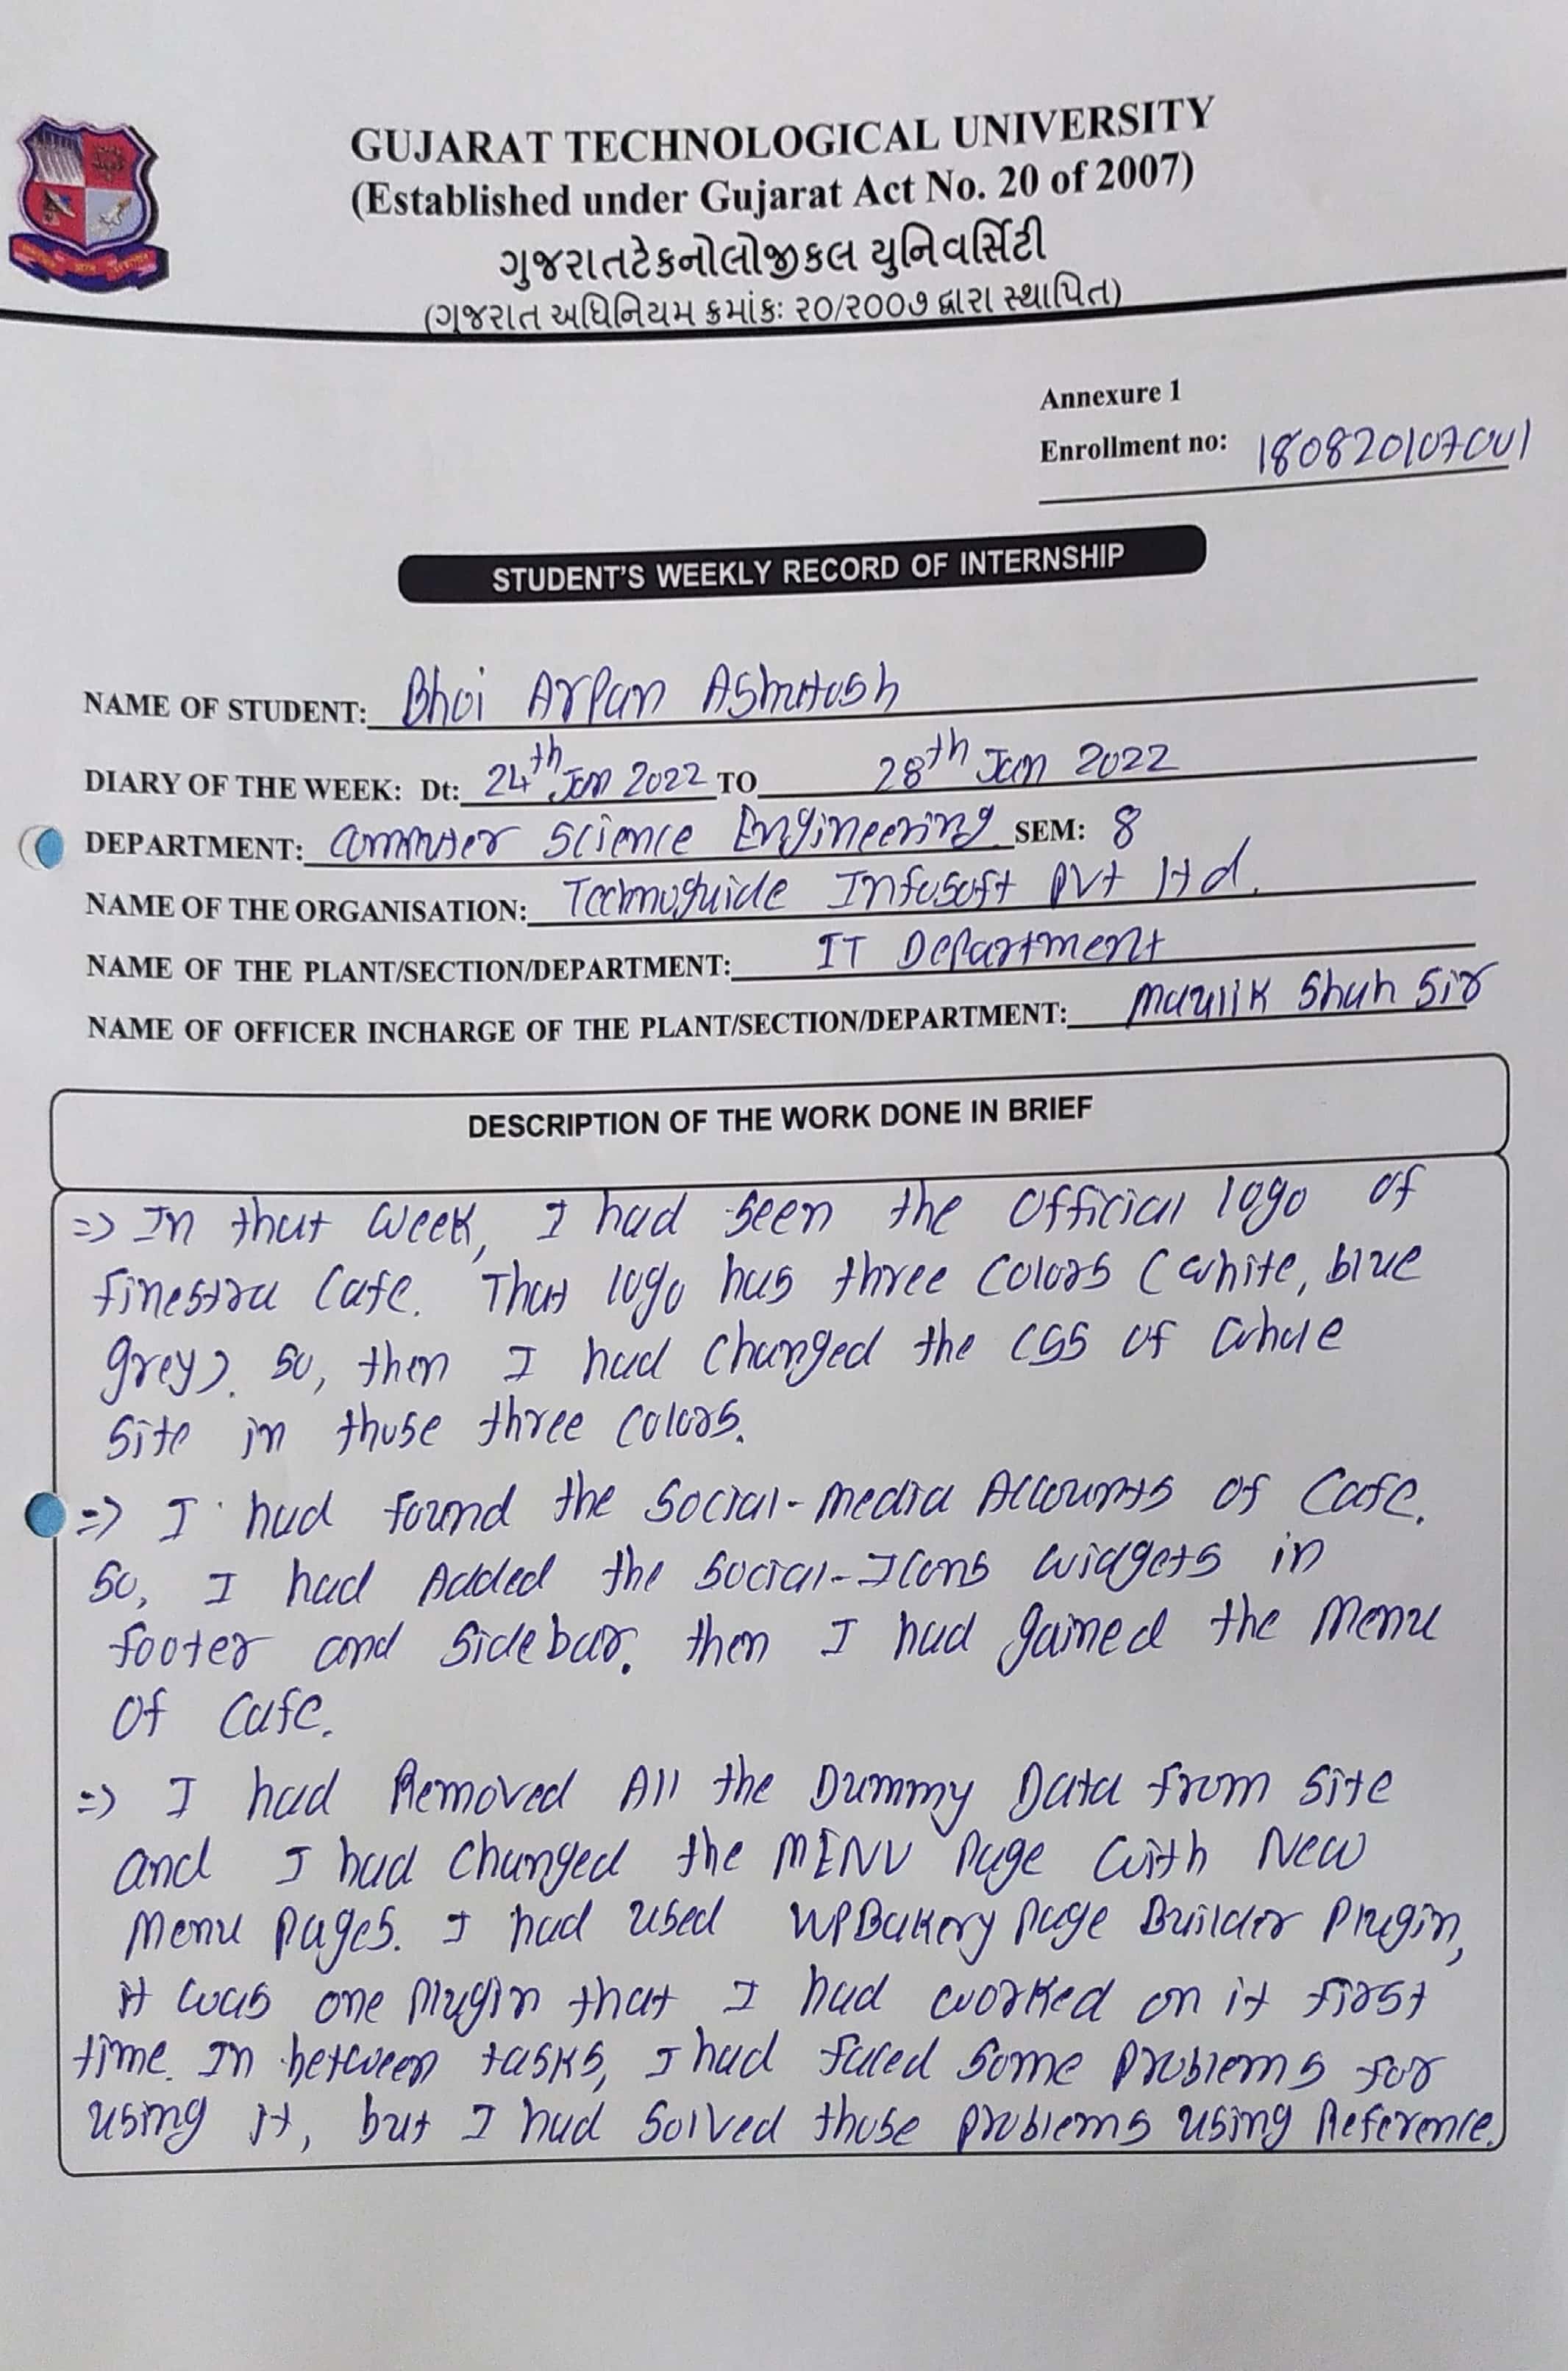 GUJARAT TECHNOLOGICAL UNIVERSITY
(Established under Gujarat Act No. 20 of 2007)
ગુજરાતટેકનોલોજીકલ યુનિવર્સિટી
(ગુજરાત અધિનિયમ ક્રમાંકઃ ૨૦/૨૦૦૭ દ્વારા સ્થાપિત)
Annexure 1
Enrollment no: 180820107001
STUDENT'S WEEKLY RECORD OF INTERNSHIP
NAME OF STUDENT: Bhoi Arpan Ashutosh
DIARY OF THE WEEK: Dt: 24th Jan 2022 TO 28th Jan 2022
DEPARTMENT: Computer Science Engineering SEM: 8
NAME OF THE ORGANISATION: Technoguide Infosoft Pvt Ltd.
NAME OF THE PLANT/SECTION/DEPARTMENT: IT Department
NAME OF OFFICER INCHARGE OF THE PLANT/SECTION/DEPARTMENT: Maulik Shah Sir
DESCRIPTION OF THE WORK DONE IN BRIEF
=> In that week, I had seen the Official logo of
finestra Cafe. That logo has three Colors (white, blue
grey). So, then I had Changed the CSS of whole
Site in those three Colors.
=> I had found the Social-media Accounts of Cafe.
So, I had Added the Social-Icons widgets in
footer and Sidebar. then I had gained the Menu
Of Cafe.
=> I had Removed All the Dummy Data from Site
and I had Changed the MENU Page with New
Menu Pages. I had used WPBakery Page Builder Plugin,
it was one Plugin that I had worked on it first
time. In between tasks, I had faced Some Problems for
using it, but I had Solved those Problems using Reference.